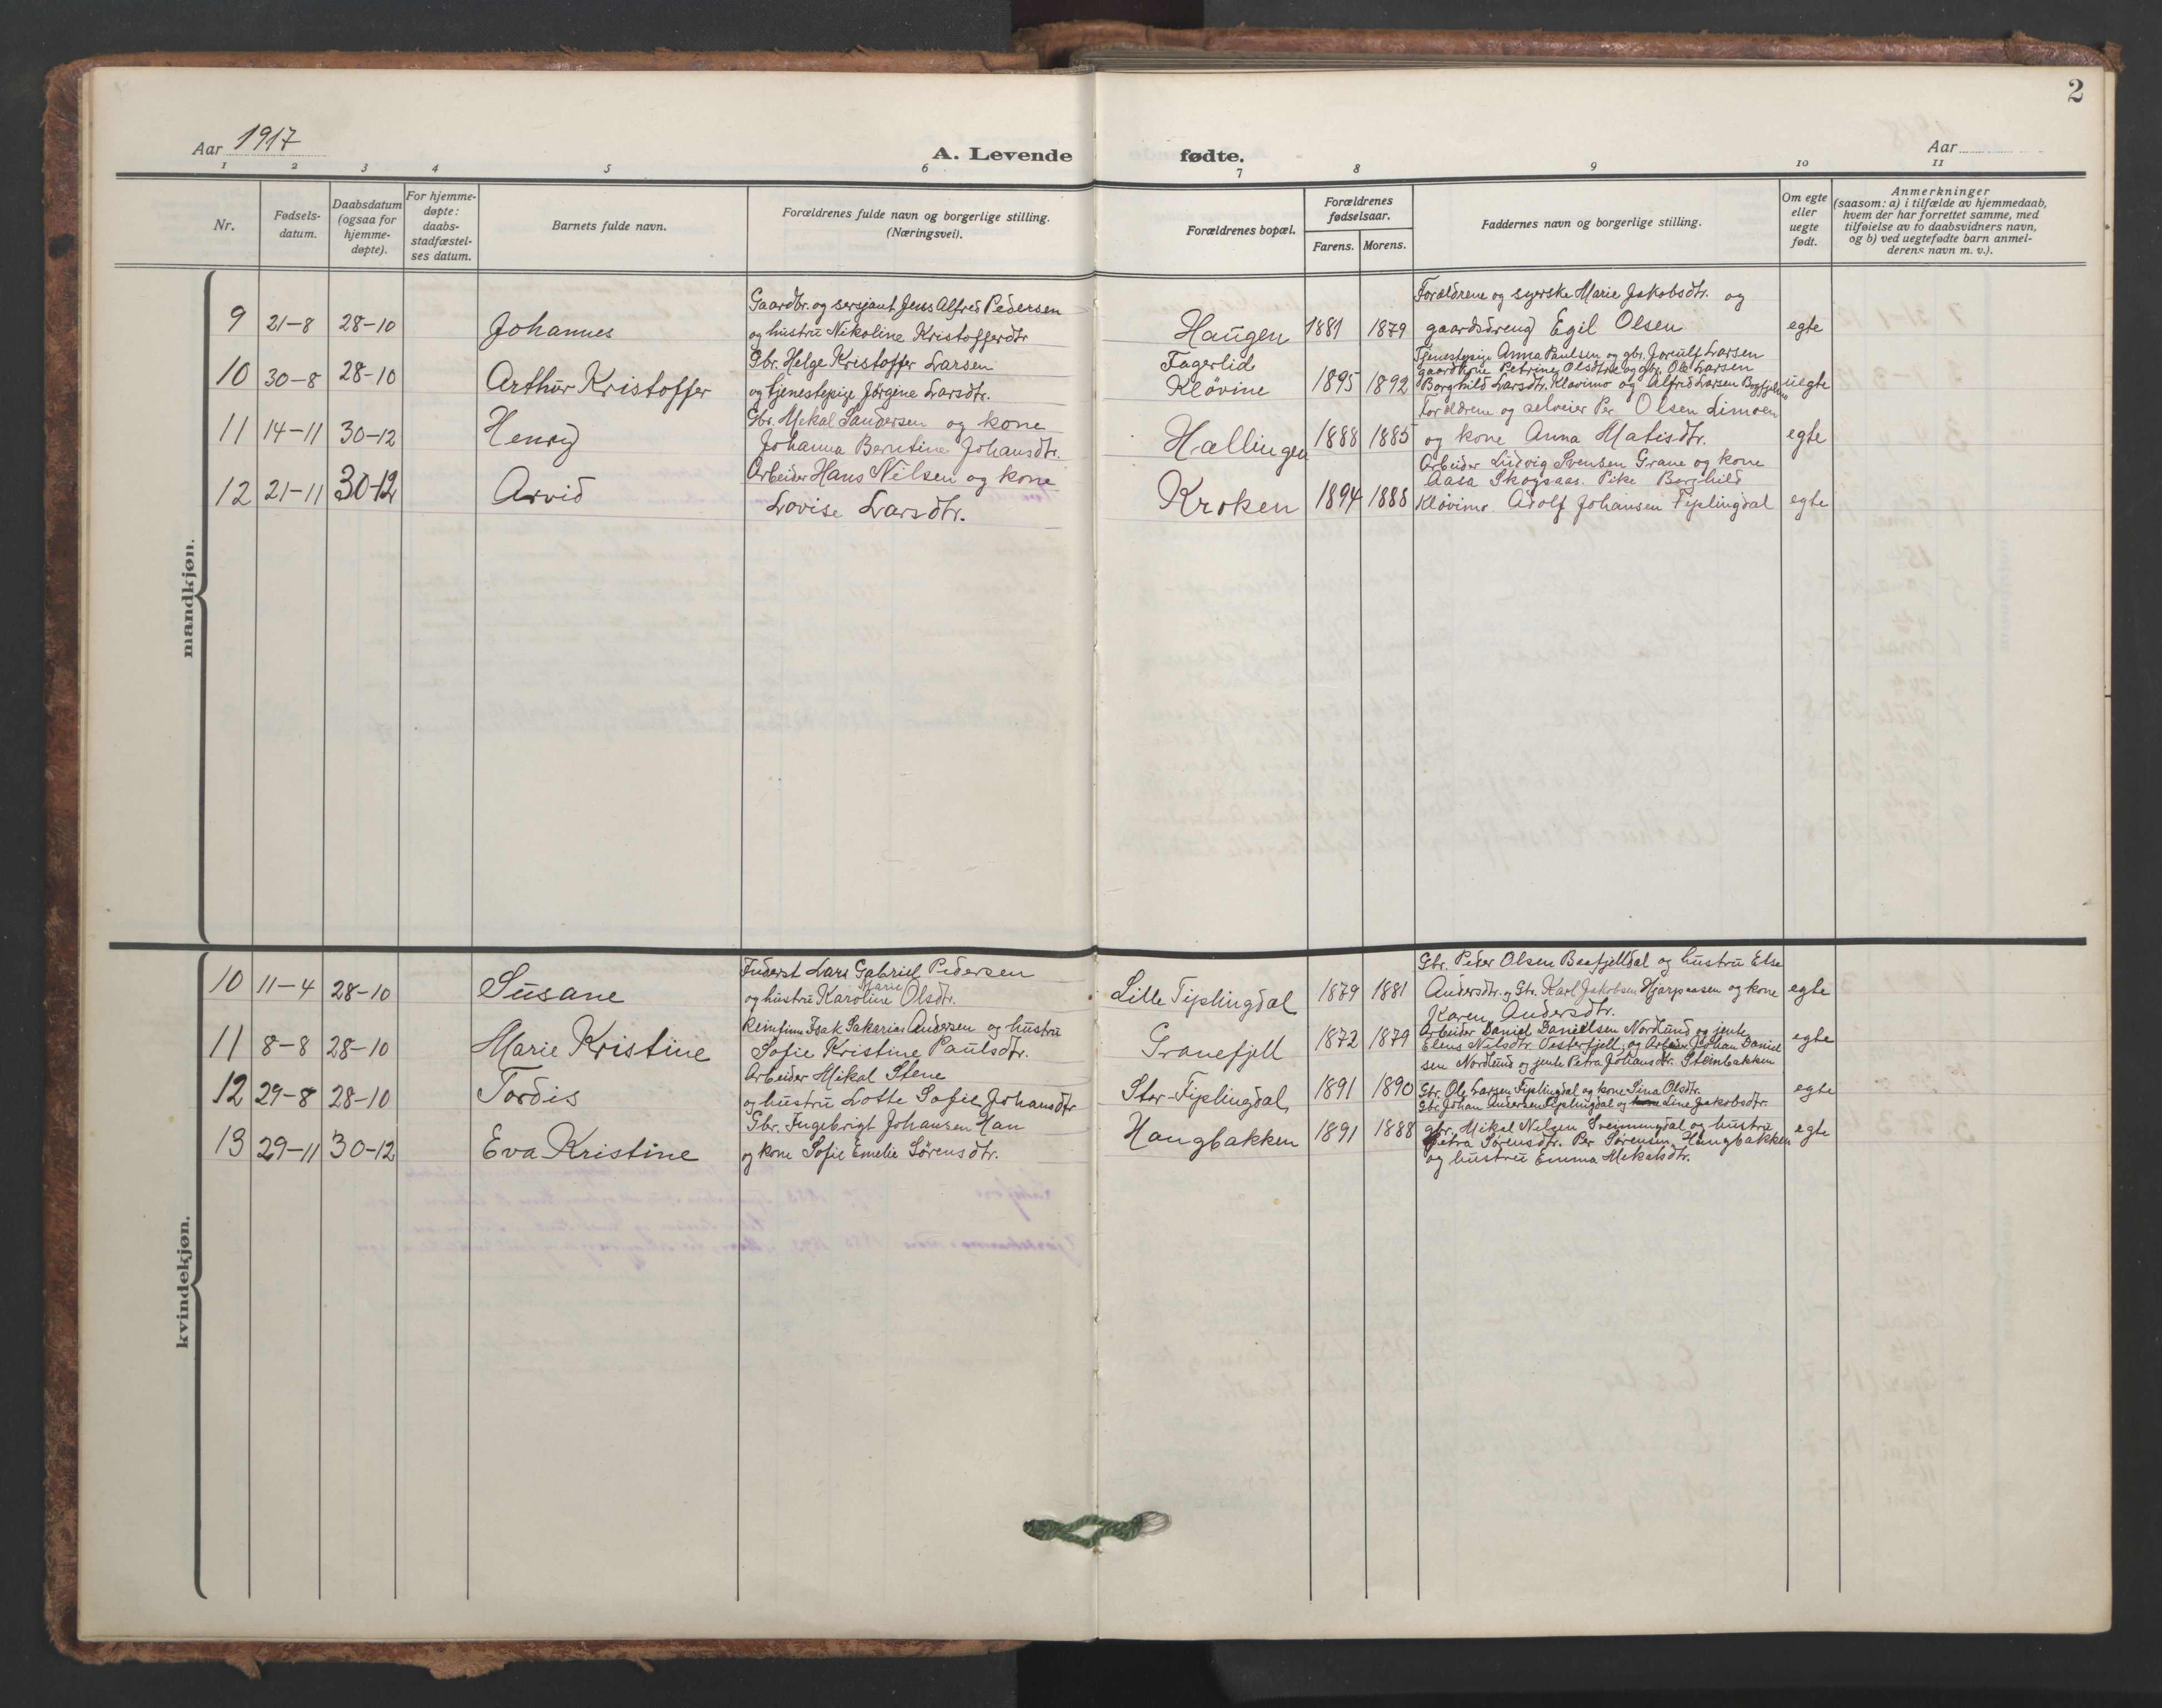 2
Aar 1917
A. Levende fødte.
Aar
1 2 3 4 5 6 7 8 9 10 11
Nr.
Fødsels-
datum.
Daabsdatum
(ogsaa for
hjemme-
døpte).
For hjemme-
døpte:
daabs-
stadfæstel-
ses datum.
Barnets fulde navn.
Forældrenes fulde navn og borgerlige stilling.
(Næringsvei).
Forældrenes bopæl.
Forældrenes
fødselsaar.
Farens. Morens.
Faddernes navn og borgerlige stilling.
Om egte
eller
uegte
født.
Anmerkninger
(saasom: a) i tilfælde av hjemmedaab,
hvem der har forrettet samme, med
tilføielse av to daabsvidners navn,
og b) ved uegtefødte barn anmel-
derens navn m. v.).
mandkjøn.
9 21-8 28-10 Johannes
Gaardbr. og sersjant Jens Alfred Pedersen
og hustru Nikoline Kristofferdtr
Haugen 1881 1879
Forældrene og syerske Marie Jakobsdtr. og
gaardsdreng Egil Olsen
egte
10 30-8 28-10 Arthur Kristoffer
Gbr. Helge Kristoffer Larsen
og tjenestepige Jørgine Larsdtr.
Fagerlid
Kløvine 1895 1892
Tjenestepige Anna Paulsen og gbr. Jorulf Larsen
gaardkone Petrine Olsdtr. og gbr. Ole Larsen
Borghild Larsdtr. Kløvimo og Alfred Larsen
uegte
11 14-11 30-12 Henry
Gbr. Mekal Sandersen og kone
Johanna Berntine Johansdtr.
Hællingen 1888 1885
Forældrene og selveier Per Olsen Limoen
og kone Anna Matisdtr.
egte
12 21-11 30-12 Arvid
Arbeider Hans Nilsen og kone
Lovise Larsdtr.
Kroken 1894 1888
Arbeider Ludvig Svensen Grane og kone
Aasa Skogsaas. Pike Borghild
Kløvimo Adolf Johansen Fiplingdal
egte
kvindekjøn.
10 11-4 28-10 Susane
Inderst Lars Gabriel Pedersen
Marie
og hustru Karoline Olsdtr.
Lille Fiplingdal 1879 1881
Gbr. Peder Olsen Bæfjelldal og hustru Else
Andersdtr. og Gbr. Karl Jakobsen Hjarpaasen og kone
Karen Andersdtr.
egte
11 8-8 28-10 Marie Kristine
Reinfinn Isak Sakarias Andersen og hustru
Sofie Kristine Paulsdtr.
Granefjell 1872 1879
Arbeider Daniel Danielsen Nordlund og jente
Elens Nilsdtr. Vesterfjell, og Arbeider Johan Daniel
sen Nordlund og jente Petra Johansdtr. Stenbakken
egte
12 29-8 28-10 Tordis
Arbeider Mikal Stene
og hustru Lotte Sofie Johansdtr
Stor-Fiplingdal 1891 1890
Gbr. Ole Larsen Fiplingdal og kone Sina Olsdtr.
Gbr. Johan Andersen Fiplingdal og kone Line Jakobsdtr.
egte
13 29-11 30-12 Eva Kristine
Gbr. Ingebrigt Johansen Han
og kone Sofie Emelie Sørensdtr.
Haugbakken 1891 1888
gbr. Mikal Nilsen Sveinmingdal og hustru
Petra Sørensdtr. Per Sørensen Haugbakken
og hustru Emma Mekalsdtr.
egte